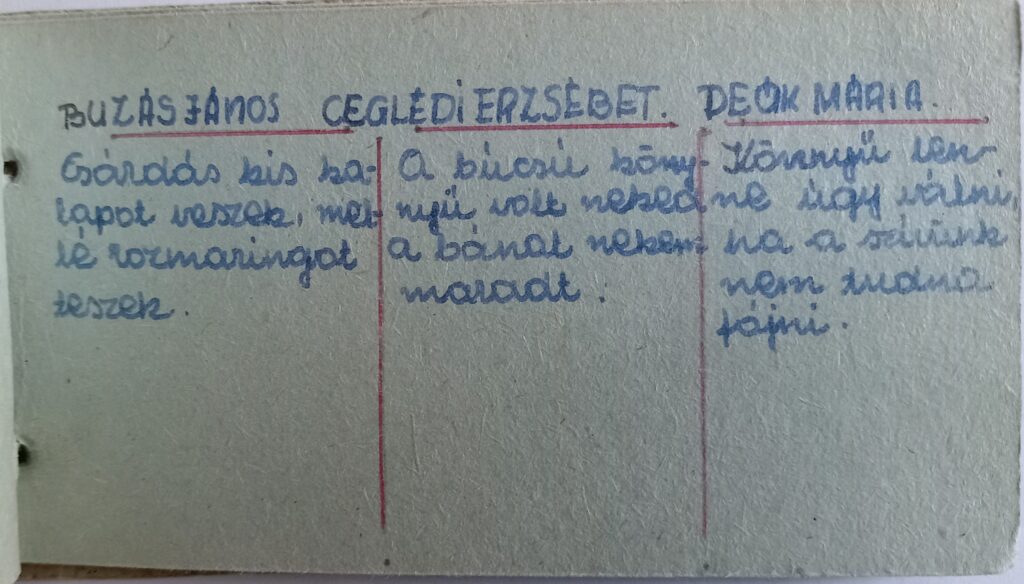 BUZÁS JÁNOS
Csárdás kis ka-
lapot veszek, mel-
lé rozmaringot
teszek.
CEGLÉDI ERZSÉBET.
A búcsú köny-
nyű volt neked
a bánat nekem
maradt.
DEÁK MÁRIA.
Könnyű len-
ne úgy válni,
ha a szívünk
nem tudna
fájni.